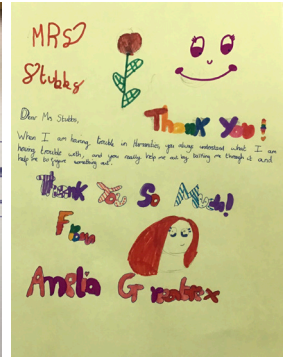 MRS
Stubbs
Dear Mrs Stubbs,
Thank You!
When I am having trouble in Humanities, you always understand what I am
having trouble with, and you really help me out by talking me through it and
help me to figure something out.
Thank You So Much!
From
Amelia Greatrex